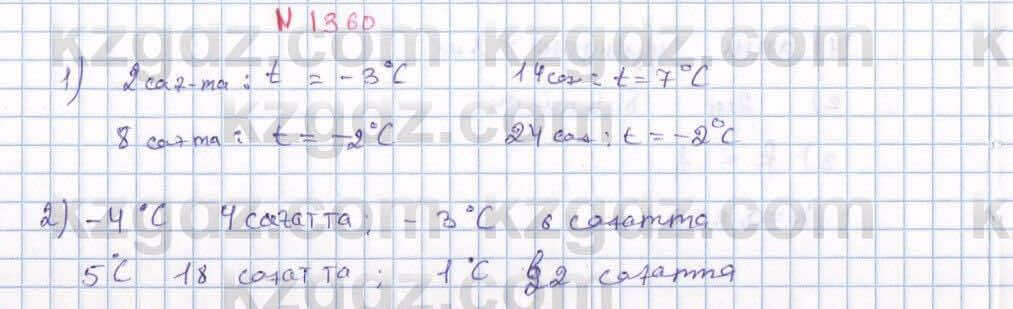 N 1360
kzgdz.com
1) 2 сағ-та: t = -3°C 14 сағ: t = 7°C
8 сағта: t = -2°C 24 сағ: t = -2°C
kzgdz.com
2) -4°C 4 сағатта; -3°C 6 сағатта
5°C 18 сағатта; 1°C 22 сағатта